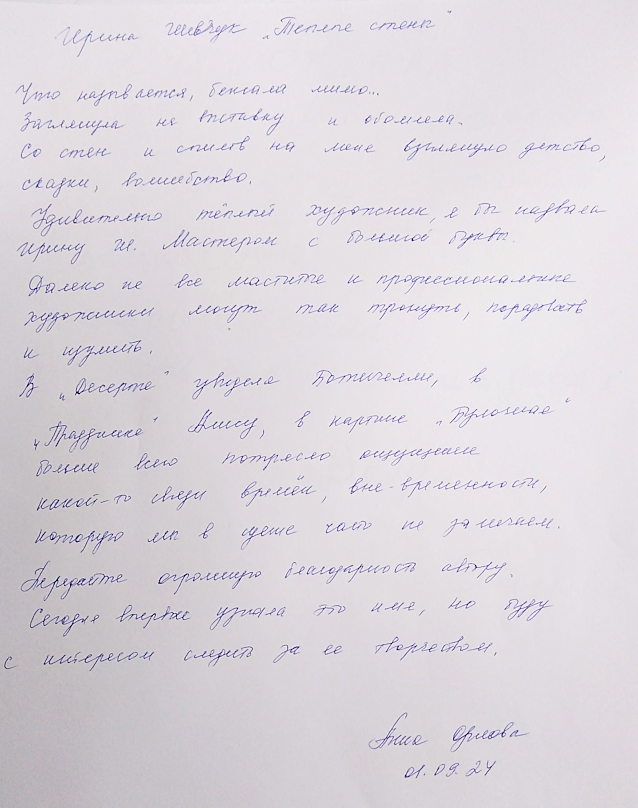 Ирина Шевчук "Теплые стены"
Что называется, бежала мимо...
Заглянула на выставку и обомлела.
Со стен и стилов на меня взглянуло детство,
сказки, волшебство.
Удивительно тёплый художник, я бы назвала
Ирину Ш. Мастером с большой буквы.
Далеко не все маститые и профессиональные
художники могут так тронуть, порадовать
и изумить.
В "Десерте" увидела Боттичелли, в
"Празднике" Алису, в картине "Булочная"
больше всего потрясло ощущение
какой-то связи времён, вне-временности,
которую мы в суете часто не замечаем.
Передайте огромную благодарность автору.
Сегодня впервые узнала это имя, но буду
с интересом следить за ее творчеством.
Анна Орлова
01.09.24